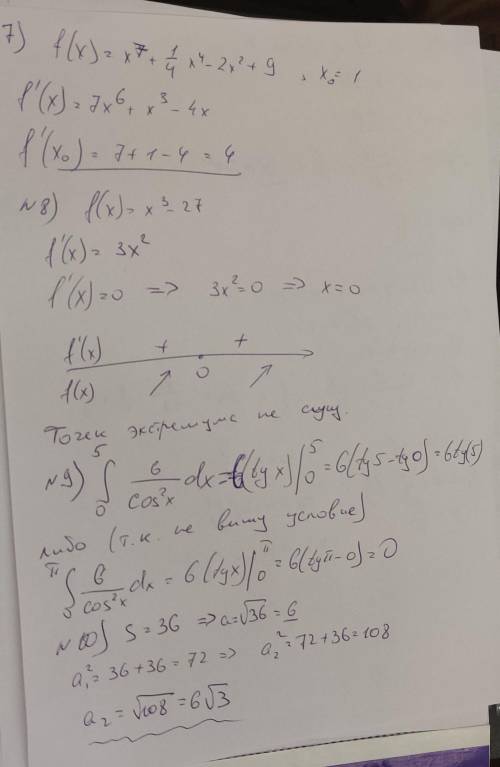 7) f(x) = x⁷ + 1/4 x⁴ - 2x² + 9 , x₀ = 1
f'(x) = 7x⁶ + x³ - 4x
f'(x₀) = 7 + 1 - 4 = 4
№8) f(x) = x³ - 27
f'(x) = 3x²
f'(x) = 0 => 3x² = 0 => x = 0
f'(x) + +
f(x) ↗ 0 ↗
Точек экстремума не сущ.
№9) ∫₀⁵ 6/cos²x dx = 6(tg x)|₀⁵ = 6(tg5 - tg0) = 6tg(5)
либо (т.к. не вижу условие)
∫₀^π 6/cos²x dx = 6(tgx)|₀^π = 6(tgπ - 0) = 0
№10) S = 36 => a = √36 = 6
a₁² = 36 + 36 = 72 => a₂² = 72 + 36 = 108
a₂ = √108 = 6√3